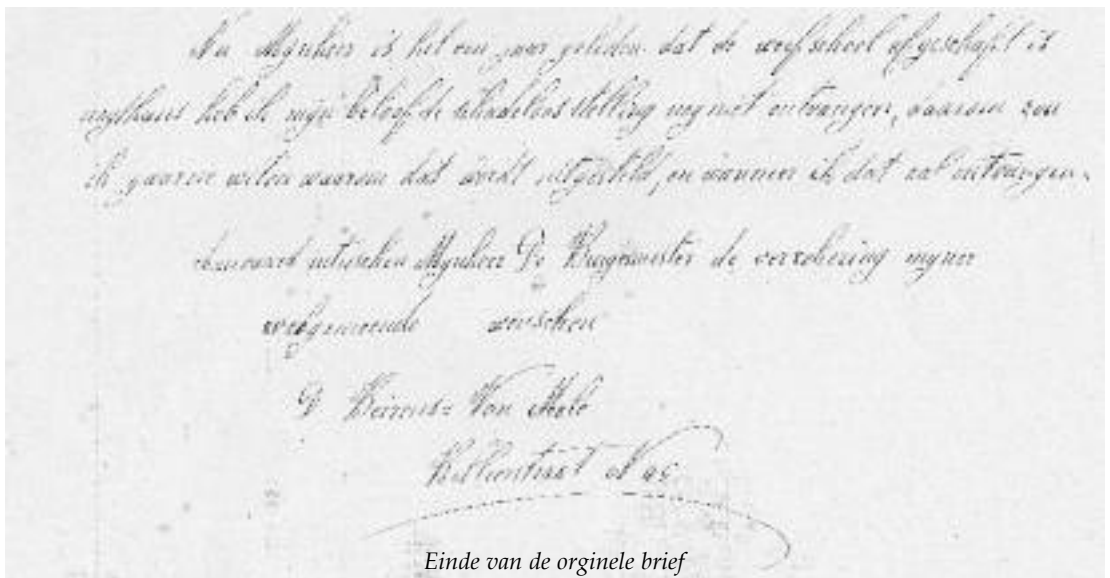 Nu Mynheer is het een jaar geleden dat de weefschool afgeschaft is
heb ik mijn beloofde schadeloosstelling nog niet ontvangen, daarom zou
ik gaaren weten waarom dat wordt uitgesteld, en wanneer ik dat zal ontvangen.
intusschen Mynheer De Burgemeester de verzekering myner
welgemeende wenschen
D Beirens = Van Melo
N
Einde van de orginele brief